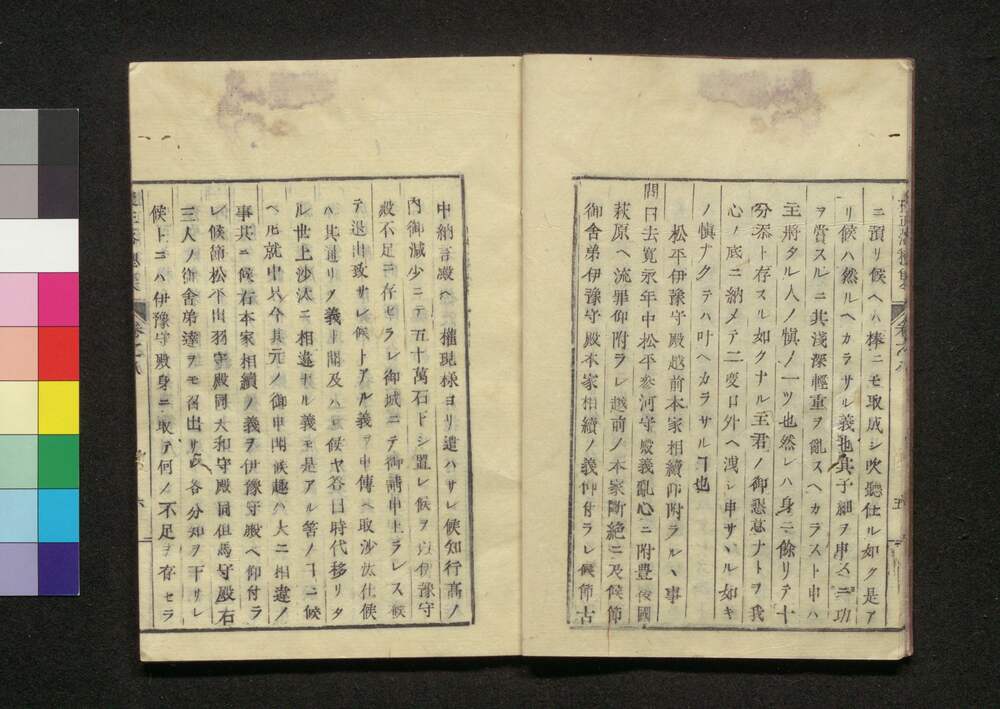 ニ預リ候ヘハ棒ニモ取成シ吹聽仕ル如ク是ア
リ候ハ然ルヘカラサル義也其子細ヲ申スニ功
ヲ賞スルニ其淺深輕重ヲ亂スヘカラスト申ハ
主將タル人ノ愼ノ一ツ也然レハ身ニ餘リテ十
分忝ト存スル如クナル主君ノ御懇意ナトヲ我
心ノ底ニ納メテ一変口外ヘ洩シ申サヽル如キ
ノ愼ナクテハ叶ヘカラサルヿ也
松平伊豫守殿越前本家相續仰附ラルヽ事
問曰去寛永年中松平参河守殿義亂心ニ附豊後國
萩原ヘ流罪仰附ラレ越前ノ本家斷絶ニ及候節
御舍弟伊豫守殿本家相續ノ義仰付ラレ候節古
中納言殿ヘ 權現様ヨリ遣ハサレ候知行高ノ
内御減少ニテ五十萬石トシ置レ候ヲ伊豫守
殿不足ニ存セラレ御城ニテ御請申上ラレス候
テ退出致サレ候トアル義ヲ申傳ヘ取沙汰仕候
ハ其通リノ義ト聞及ハレ候ヤ答曰時代移リタ
ル世上沙汰ニ相違ナル義モ是アル筈ノヿニ候
ヘ𪜈就中只今其元ノ御申聞候趣ハ大ニ相違ノ
事共ニ候右本家相續ノ義ヲ伊豫守殿ヘ仰付ラ
レ候節松平出羽守殿同大和守殿同但馬守殿右
三人ノ御舍弟達ヲモ召出サレ各分知ヲ下サレ
候トニハ伊豫守殿身ニ取テ何ノ不足ヲ存セラ
卷之八
五
六